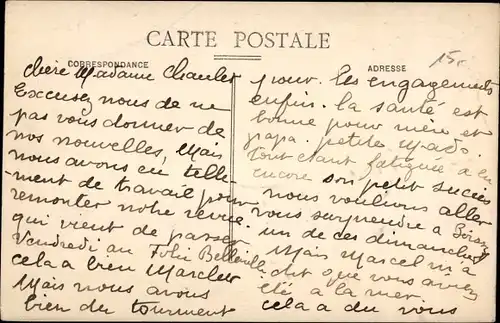 CARTE POSTALE
CORRESPONDANCE
ADRESSE
15
Chère Madame Chanlet
Excusez nous de ne
pas vous donner de
nos nouvelles, Mais
nous avons eu telle-
ment de travail pour
remonter notre revue
qui vient de passer
Vendredi au Folie Belleville
cela a bien Marcher
Mais nous avons
bien du tourment
pour les engagements
enfin. la santé est
bonne pour mère et
papa. petite Mado
tout etant fatiguée a eu
encore son petit succès
nous voulions aller
vous surprendre a
un de ces dimanches
Mais Marcel m'a
dit que vous aviez
été a la mer
cela a du vous